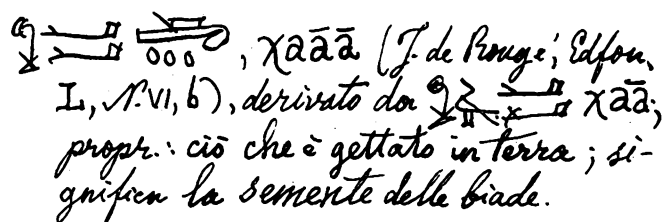 , χaāā (J. de Rougé, Edfou,
I, N. VI, b), derivato da χaā,
propr.: ciò che è gettato in terra; si-
gnifica la semente delle biade.